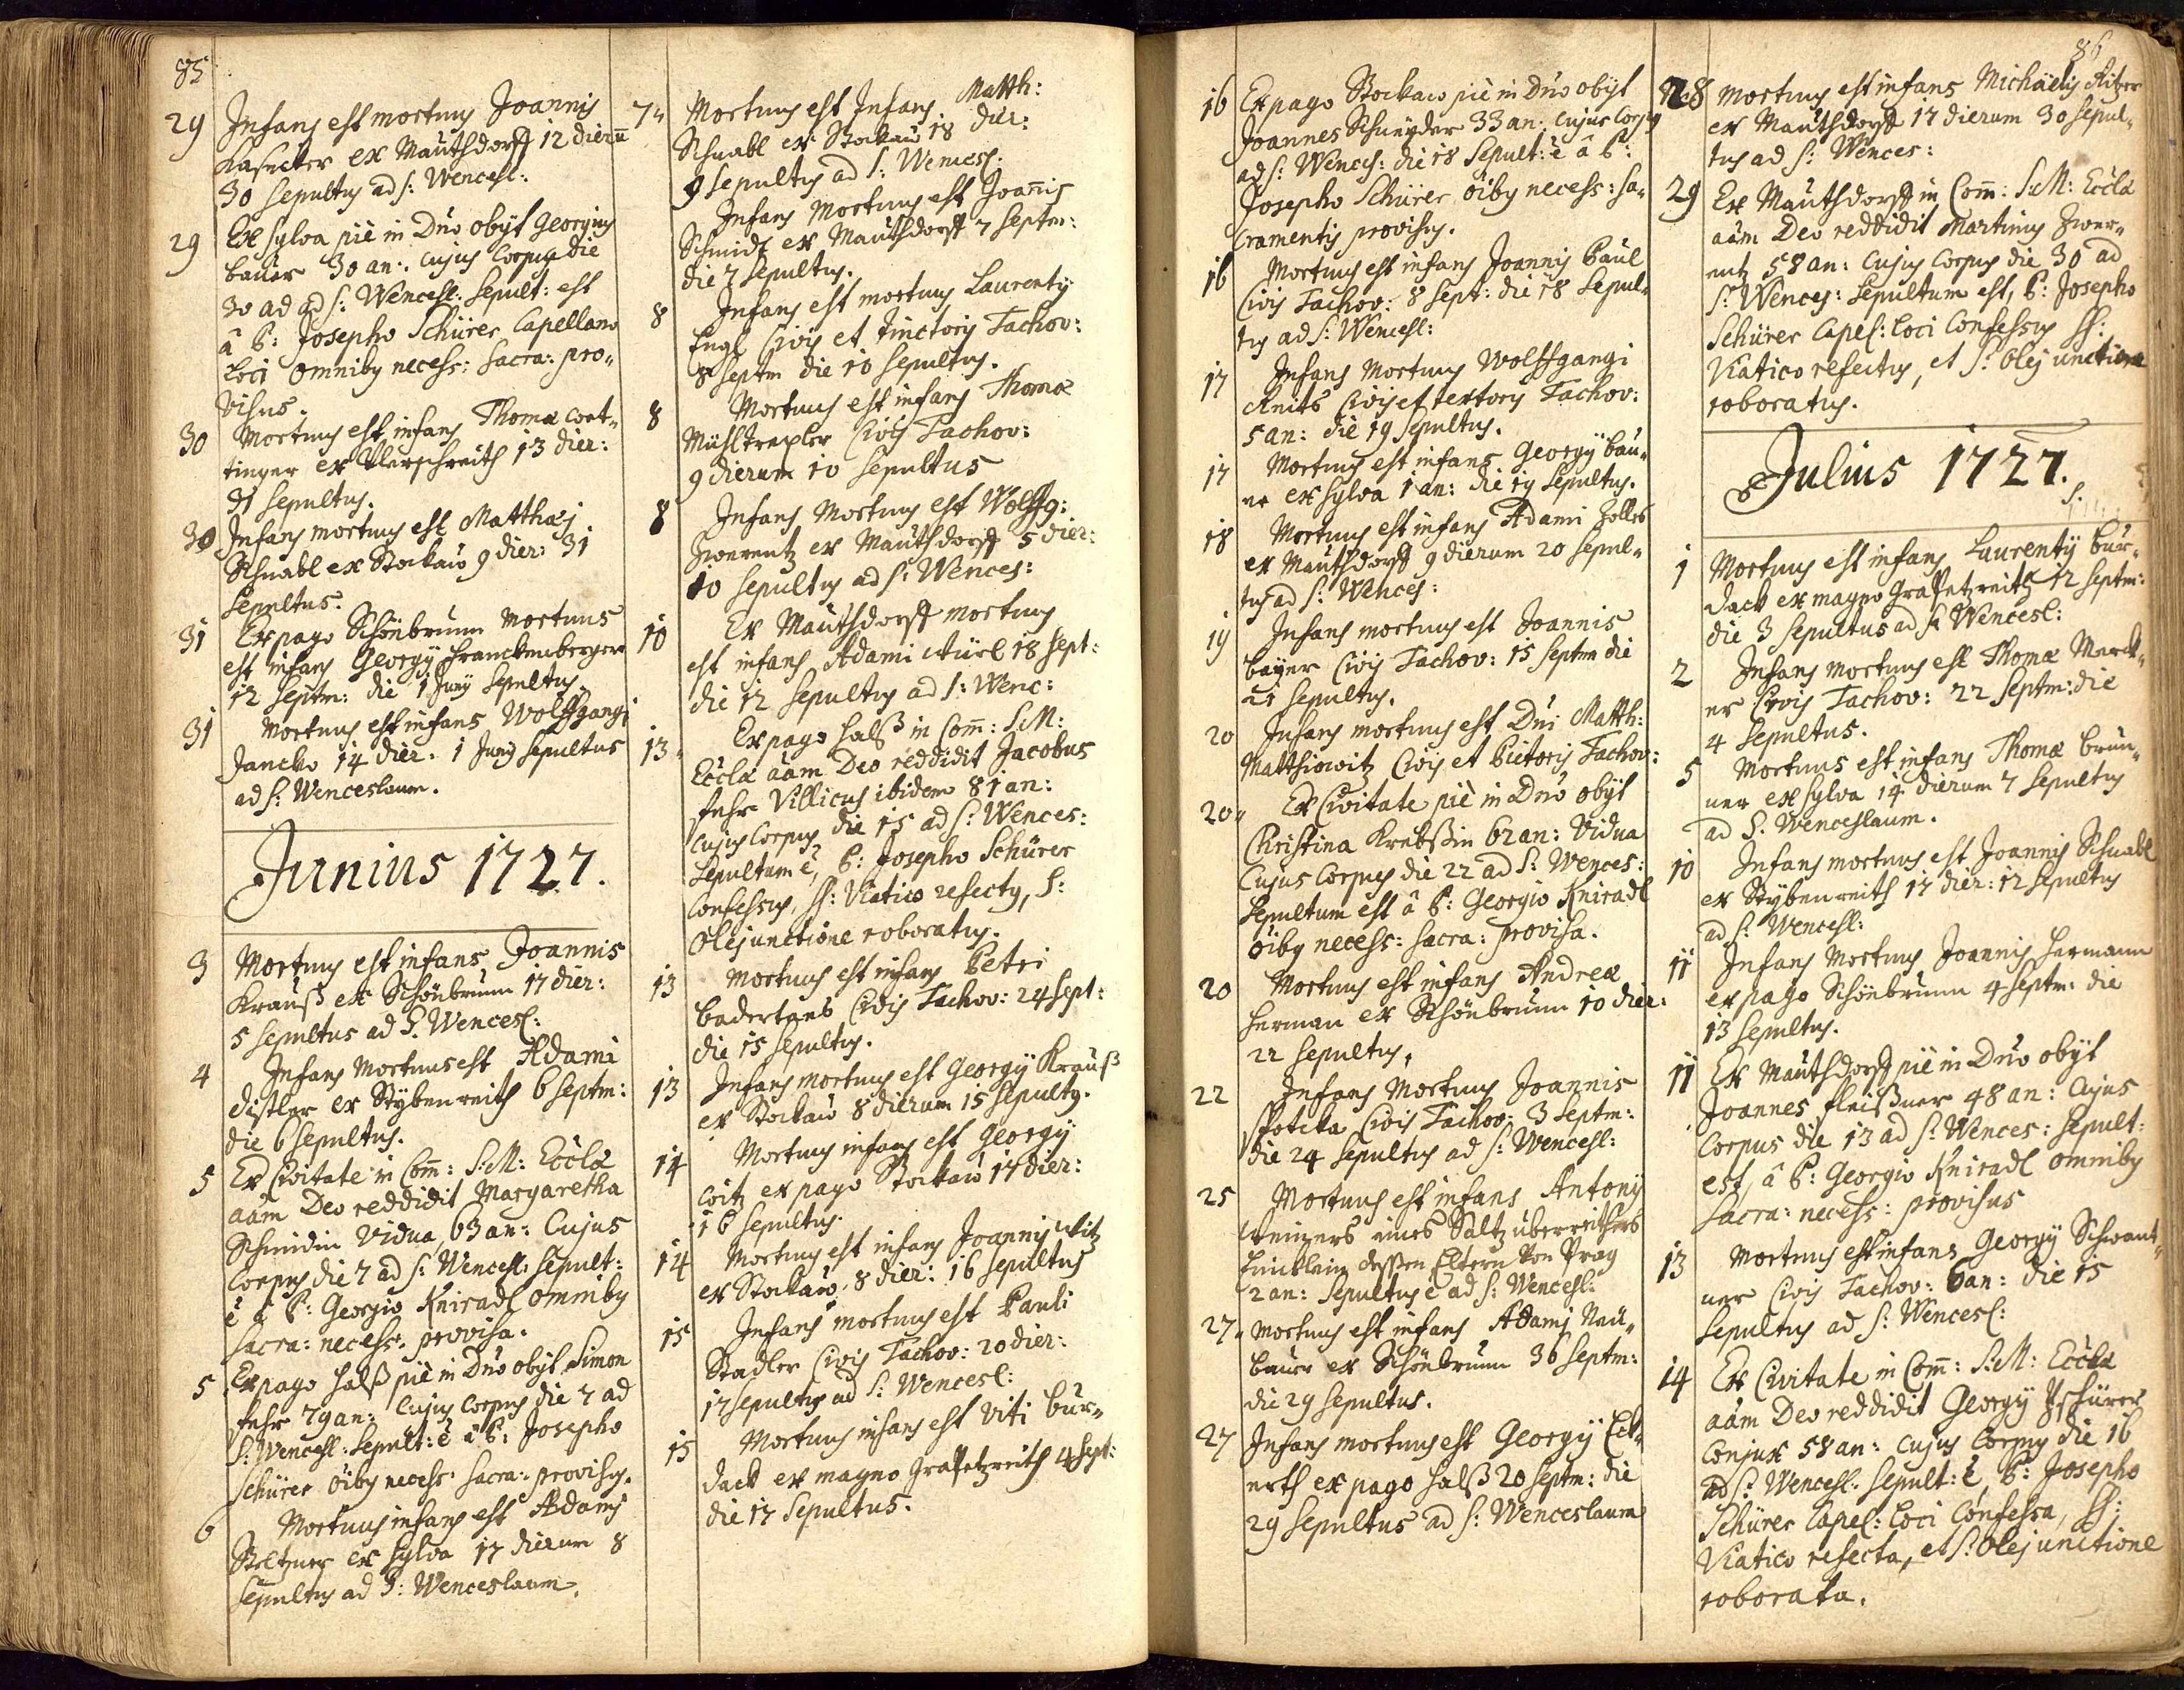 85
29 Infans est mortuus Joannis
Kasecker ex Mauthdorff 12 dierū
30 Sepultus ad S: Wencesl:
29 Ex sylva piè in Dno obijt Georgius
Bauer 30 an: Cujus Corpus die
30 ad ad S: Wencesl: Sepult: est
â P: Josepho Schürer Capellano
Loci Omnibus necess: Sacra: pro„
visus.
30 Mortuus est infans Thomæ
tinger ex 13 dier:
31 Sepultus.
30 Infans mortuus est Matthæj
Schnabl ex Stockau 9 dier: 31
Sepultus.
31 Ex pago Schönbrunn Mortuus
est infans Georgÿ Franckenberger
12 Septm: die 1 Junij Sepultus
31 Mortuus est infans Wolffgangi
Jancko 14 dier: 1 Junij Sepultus
ad S: Wenceslaum.
Junius 1727.
3 Mortuus est infans Joannis
Krauß ex Schönbrunn 17 dier:
5 Sepultus ad S. Wencesl:
4 Infans Mortuus est Adami
Distler ex Stÿbenreith 6 Septm:
die 6 Sepultus.
5 Ex Civitate in Com̄: S:M: Eccl͞æ
aām Deo reddidit Margaretha
Schmidin Vidua, 63 an: Cujus
Corpus die 7 ad S: Wencesl: Sepult:
ē â P: Georgio Kniradl omnibus
Sacra: necess: provisa.
5 Ex pago Halß piè in Dno obijt Simon
Fuhr 79 an: Cujus Corpus die 7 ad
S: Wencesl: Sepult: ē â P: Josepho
Schürer oībus necess: Sacra: provisus.
6 Mortuus infans est Adami
Steltzner ex sylva 17 dierum 8
Sepultus ad S: Wenceslaum.
7„ Mortuus est Infans Matth:
Schnabl ex Stockau 18 dier:
9 Sepultus ad S: Wencesl:
Infans Mortuus est Joān̄is
Schmidt ex Mauthdorff 7 Septm:
die 7 Sepultus.
8 Infans est mortuus Laurentÿ
Engl Civis et Tinctoris Tachov:
8 Septm die 10 Sepultus.
8 Mortuus est infans Thomæ
Civis Tachov:
9 dierum 10 Sepultus
8 Infans Mortuus est Wolffg:
Zwerentz ex Mauthdorff 5 dier:
10 Sepultus ad S: Wences:
10 Ex Mauthdorff mortuus
est infans Adami 18 Sept:
die 12 Sepultus ad S: Wenc:
13„ Ex pago Halß in Com̄: S:M:
Eccl͞æ aām Deo reddidit Jacobus
Fuhr Villicus ibidem 81 an:
Cujus Corpus die 15 ad S: Wences:
Sepultum ē, P: Josepho Schürer
Confessus, SS: Viatico refectus, S:
Olej unctione roboratus.
13 Mortuus est infans Petri
Civis Tachov: 24 Sept:
die 15 Sepultus.
13 Infans mortuus est Georgÿ Krauß
ex Stockau 8 dierum 15 Sepultus.
14 Mortuus infans est Georgÿ
ex pago Stockau 17 dier:
16 Sepultus.
14 Mortuus est infans Joannis
ex Stockau 8 dier: 16 Sepultus
15 Infans mortuus est Pauli
Stadler Civis Tachov: 20 dier:
17 Sepultus ad S: Wencesl:
15 Mortuus infans est Viti Bur„
dack ex magno Grafetzreith 4 Sept:
die 17 Sepultus.
86
16 Ex pago Stockau piè in Dno obijt
Joannes Schneÿder 33 an: Cujus Corpus
ad S: Wences: die 18 Sepult: ē â P:
Josepho Schürer oībus necess: Sa„
cramentis provisus.
16 Mortuus est infans Joannis Paul
Civis Tachov: 8 Sept: die 18 Sepul„
tus ad S: Wencesl:
17 Infans Mortuus Wolffgangi
Civis et textoris Tachov:
5 an: die 19 Sepultus.
17 Mortuus est infans Georgÿ Bau„
er ex sylva 1 an: die 19 Sepultus.
18 Mortuus est infans Adami
ex Mauthdorff 9 dierum 20 Sepul„
tus ad S: Wences:
19 Infans mortuus est Joannis
Baÿer Civis Tachov: 15 Septm die
21 Sepultus.
20 Infans mortuus est Dni Matth:
Matthiowitz Civis et Pictoris Tachov:
20„ Ex Civitate piè in Dno obijt
Christina Krebßin 62 an: Vidua
Cujus Corpus die 22 ad S: Wences:
Sepultum est â P: Georgio Kniradl
oībus necess: Sacra: provisa.
20 Mortuus est infans Andreæ
Herman ex Schönbrunn 10 dier:
22 Sepultus.
22 Infans Mortuus Joannis
Civis Tachov: 3 Septm:
die 24 Sepultus ad S: Wencesl:
25 Mortuus est infans Antonij
eines Saltz überreithers
dessen Eltern von Prag
2 an: Sepultus ē ad S: Wencesl:
27„ Mortuus est infans Adami Neu„
bauer ex Schönbrunn 36 Septm:
die 29 Sepultus.
27 Infans mortuus est Georgÿ Eck„
erth ex pago Halß 20 Septm: die
29 Sepultus ad S: Wenceslaum
28 Mortuus est infans Michaelis Ritzer
ex Mauthdorff 17 dierum 30 Sepul„
tus ad S: Wences:
29 Ex Mauthdorff in Com̄: S:M: Eccl͞æ
aām Deo reddidit Martinus Zwer„
entz 58 an: Cujus Corpus die 30 ad
S: Wences: Sepultum est, P: Josepho
Schürer Capel: Loci Confessus SS:
Viatico refectus, et S: Olej unctione
roboratus.
Julius 1727.
1 Mortuus est infans Laurentÿ Bur„
dack ex magno Grafetzreith 12 Septm:
die 3 Sepultus ad S: Wencesl:
2 Infans mortuus est Thomæ Merck„
er Civis Tachov: 22 Septm: die
4 Sepultus.
5 Mortuus est infans Thomæ Brun„
ner ex sylva 14 dierum 7 Sepultus
ad S. Wenceslaum.
10 Infans mortuus est Joannis Schnabl
ex Stÿbenreith 17 dier: 12 Sepultus
ad S: Wencesl:
11 Infans Mortuus Joannis Hermann
ex pago Schönbrunn 4 Septm: die
13 Sepultus.
11 Ex Mauthdorff piè in Dno obijt
Joannes Fleißner 48 an: Cujus
Corpus die 13 ad S: Wences: Sepult:
est, â P: Georgio Kniradl omnibus
Sacra: necess: provisus
13 Mortuus est infans Georgÿ Schwant„
ner Civis Tachov: 6 an: die 15
Sepultus ad S: Wencesl:
14 Ex Civitate in Com̄: S:M: Eccl͞æ
aām Deo reddidit Georgÿ
Conjux 58 an: Cujus Corpus die 16
ad S: Wencesl: Sepult: ē, P: Josepho
Schürer Capel: Loci Confessa, SS:
Viatico refecta, et S: Olej unctione
roborata.